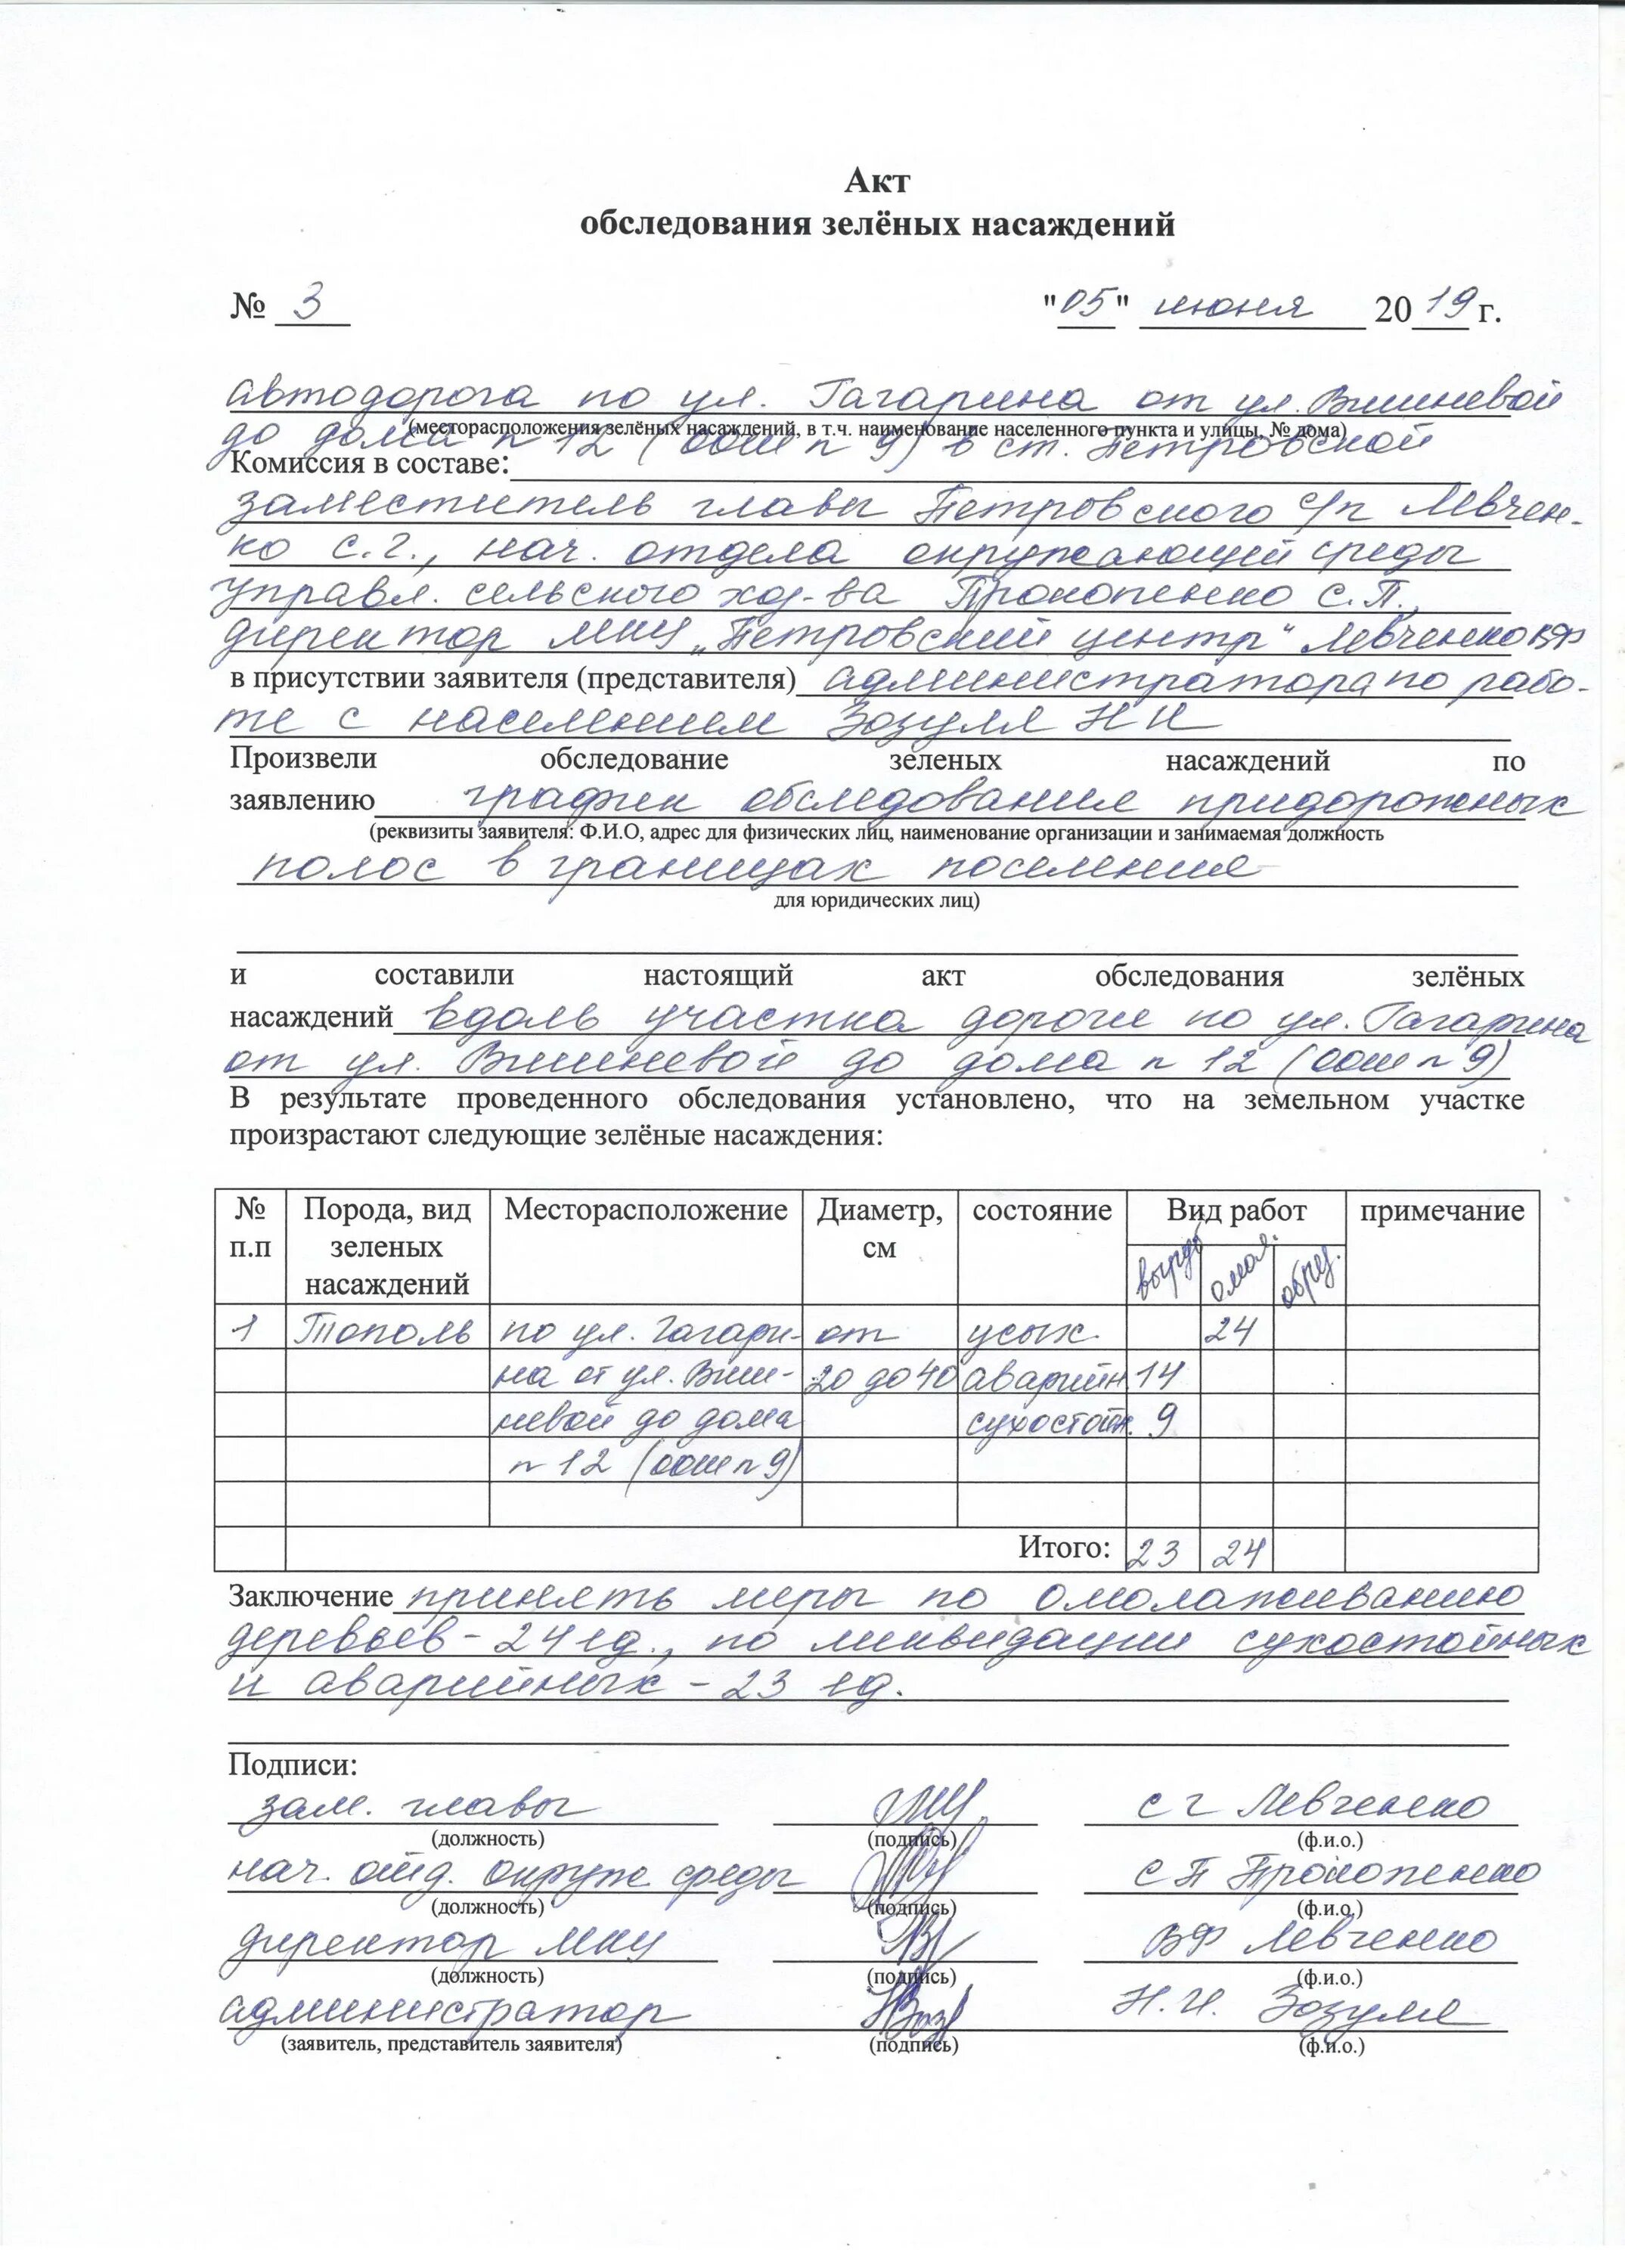 Акт
обследования зелёных насаждений
№ 3 "05" июня 2019 г.
автодорога по ул. Гагарина от ул. Вишневой
(месторасположения зелёных насаждений, в т.ч. наименование населенного пункта и улицы, № дома)
до дома № 12 (оош № 9) в ст. Петровской
Комиссия в составе:
заместитель главы Петровского с/п Левчен-
ко С.Г., нач. отдела окружающей среды
управл. сельского хоз-ва Прокопенко С.П.,
директор МКУ „Петровский центр“ Левченко ВФ
в присутствии заявителя (представителя) администратора по рабо-
те с населением Зозуля Н И
Произвели обследование зеленых насаждений по
заявлению график обследования придорожных
(реквизиты заявителя: Ф.И.О, адрес для физических лиц, наименование организации и занимаемая должность
полос в границах поселения
для юридических лиц)
и составили настоящий акт обследования зелёных
насаждений вдоль участка дороги по ул. Гагарина
от ул. Вишневой до дома № 12 (оош № 9)
В результате проведенного обследования установлено, что на земельном участке
произрастают следующие зелёные насаждения:
№ п.п Порода, вид зеленых насаждений Месторасположение Диаметр, см состояние Вид работ примечание
выруб омол. обрез.
1 Тополь по ул. Гагари- от усых. 24
на от ул. Виш- 20 до 40 аварийн. 14
невой до дома сухостойн. 9
№ 12 (оош № 9)
Итого: 23 24
Заключение принять меры по омолаживанию
деревьев - 24 ед., по ликвидации сухостойных
и аварийных - 23 ед.
Подписи:
зам. главы С Г Левченко
(должность) (подпись) (ф.и.о.)
нач. отд. окруж среды С П Прокопенко
(должность) (подпись) (ф.и.о.)
директор МКУ ВФ Левченко
(должность) (подпись) (ф.и.о.)
администратор Н.И. Зозуля
(заявитель, представитель заявителя) (подпись) (ф.и.о.)